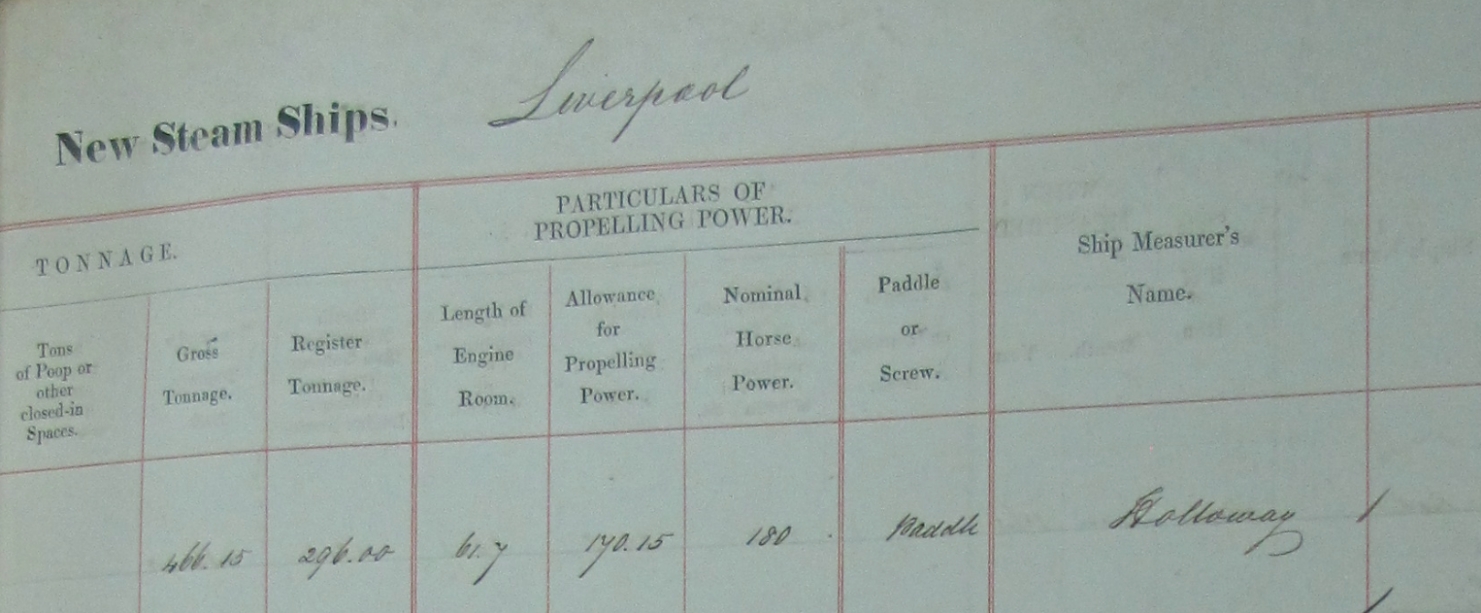 New Steam Ships. Liverpool
TONNAGE.
PARTICULARS OF
PROPELLING POWER.
Ship Measurer's
Name.
Tons
of Poop or
other
closed-in
Spaces.
Gross
Tonnage.
Register
Tonnage.
Length of
Engine
Room.
Allowance
for
Propelling
Power.
Nominal
Horse
Power.
Paddle
or
Screw.
466.15 296.00 61.7 170.15 180 Paddle Holloway 1